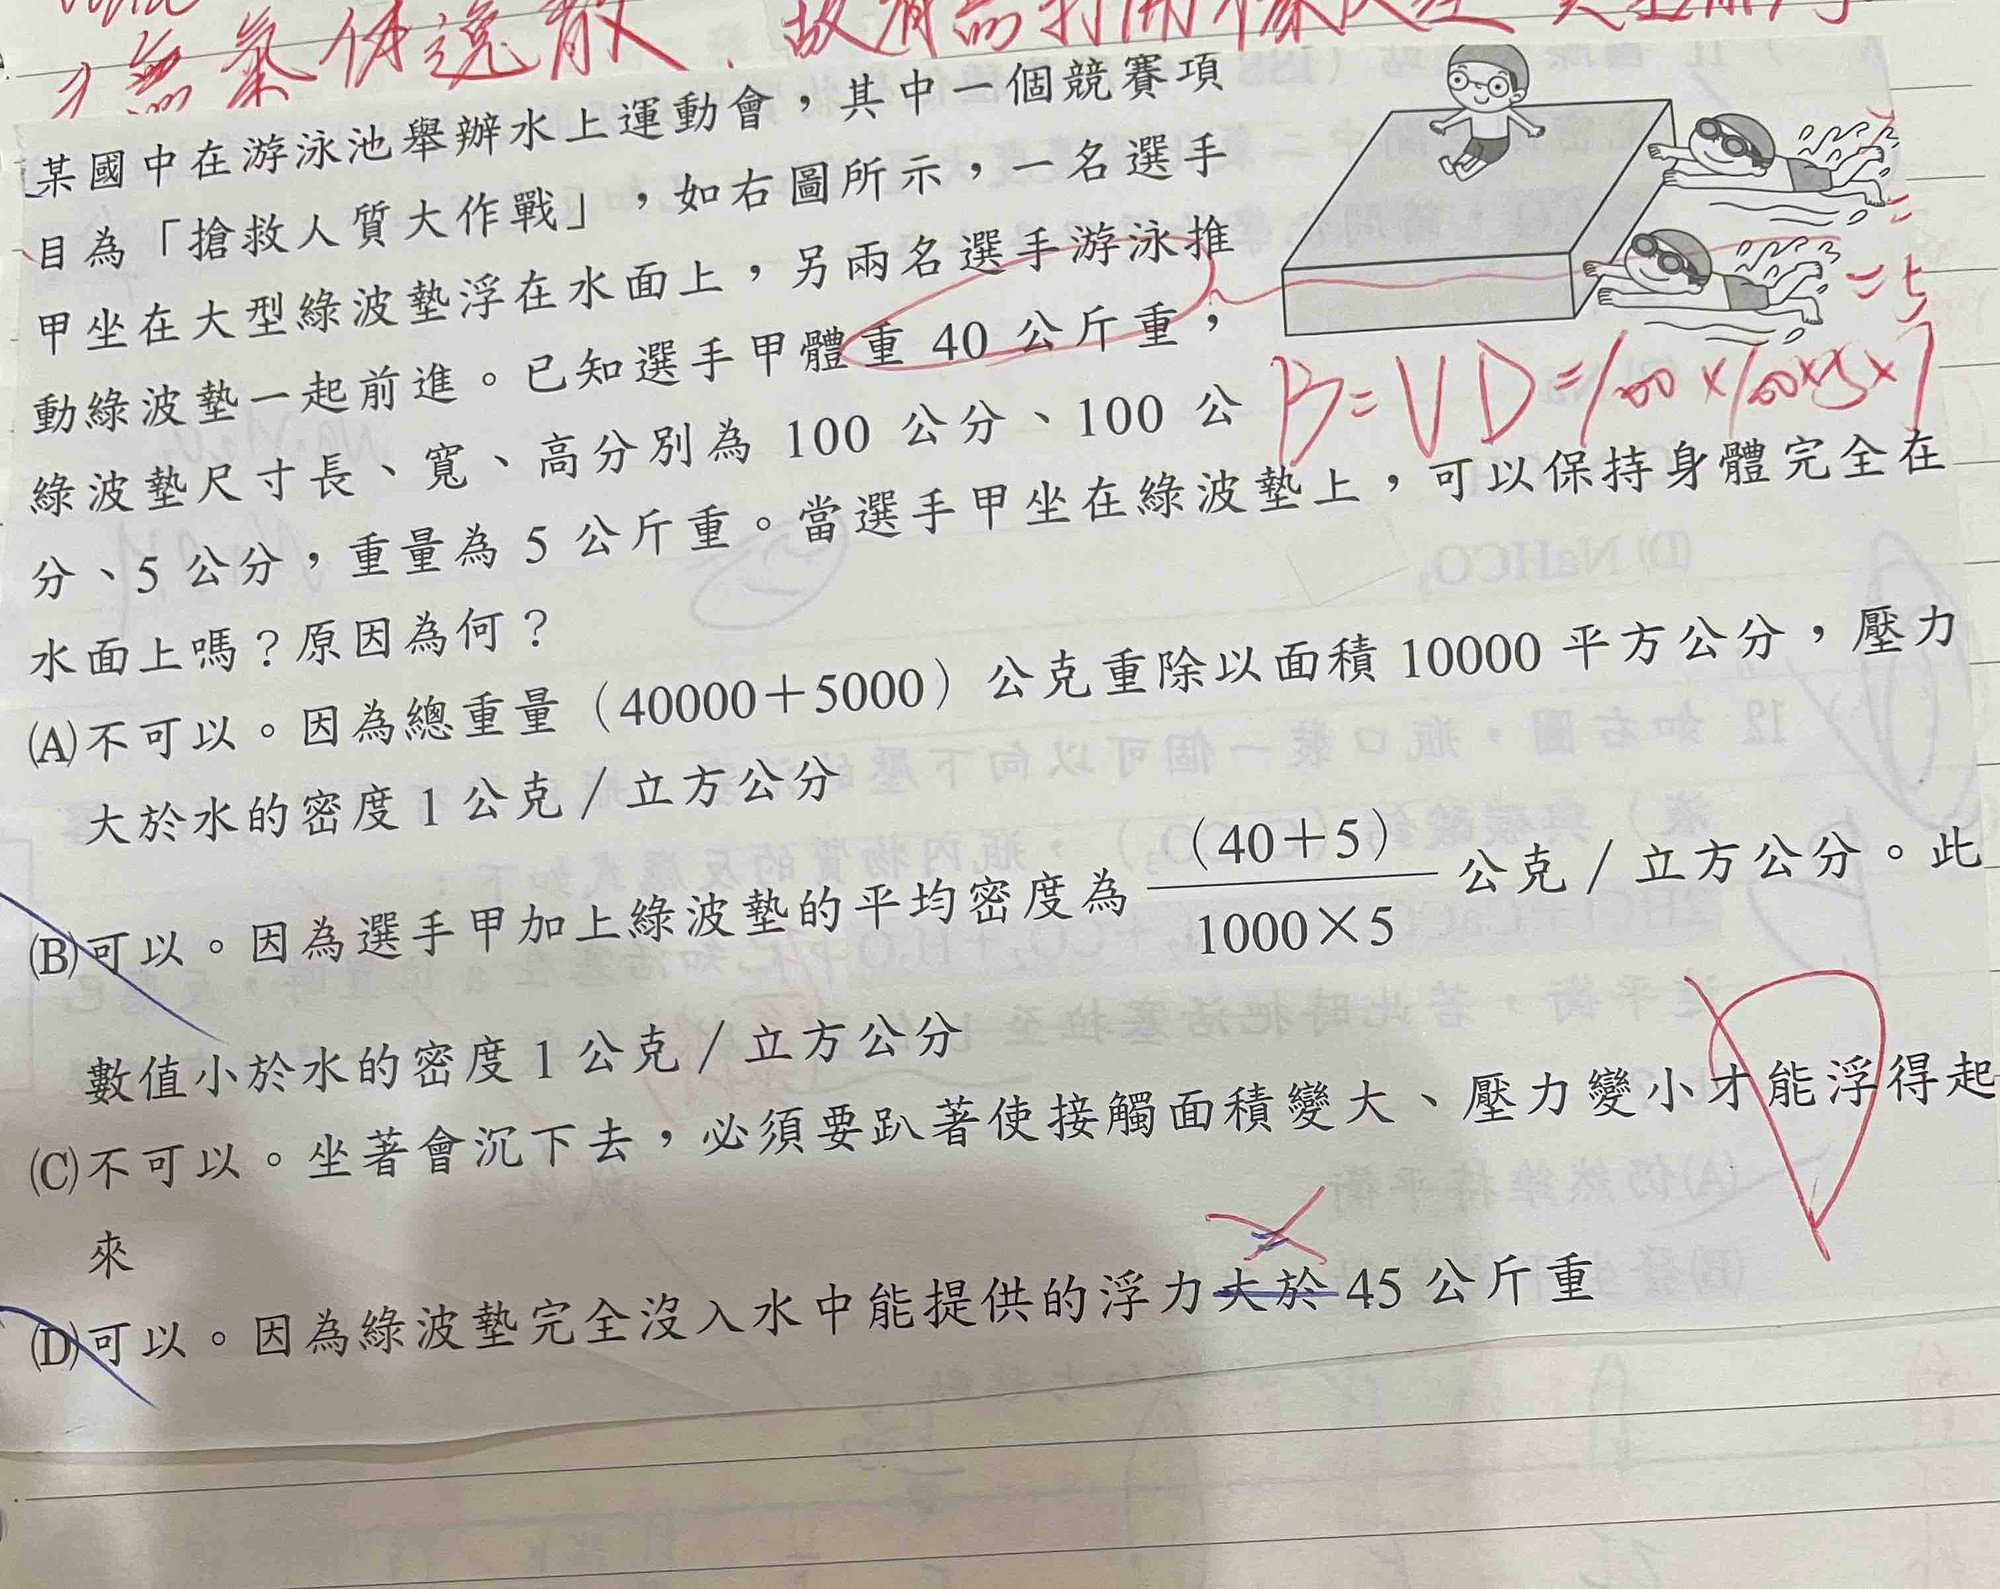 無氣体逸散,故
某國中在游泳池舉辦水上運動會,其中一個競賽項
目為「搶救人質大作戰」,如右圖所示,一名選手
甲坐在大型綠波墊浮在水面上,另兩名選手游泳推
動綠波墊一起前進。已知選手甲體重 40 公斤重,
綠波墊尺寸長、寬、高分別為 100 公分、100 公
B=VD=100×100×5×1
分、5 公分,重量為 5 公斤重。當選手甲坐在綠波墊上,可以保持身體完全在
水面上嗎?原因為何?
(A)不可以。因為總重量(40000+5000)公克重除以面積 10000 平方公分,壓力
大於水的密度 1 公克/立方公分
(B)可以。因為選手甲加上綠波墊的平均密度為 (40+5)/1000×5 公克/立方公分。此
數值小於水的密度 1 公克/立方公分
(C)不可以。坐著會沉下去,必須要趴著使接觸面積變大、壓力變小才能浮得起
來
(D)可以。因為綠波墊完全沒入水中能提供的浮力大於 45 公斤重